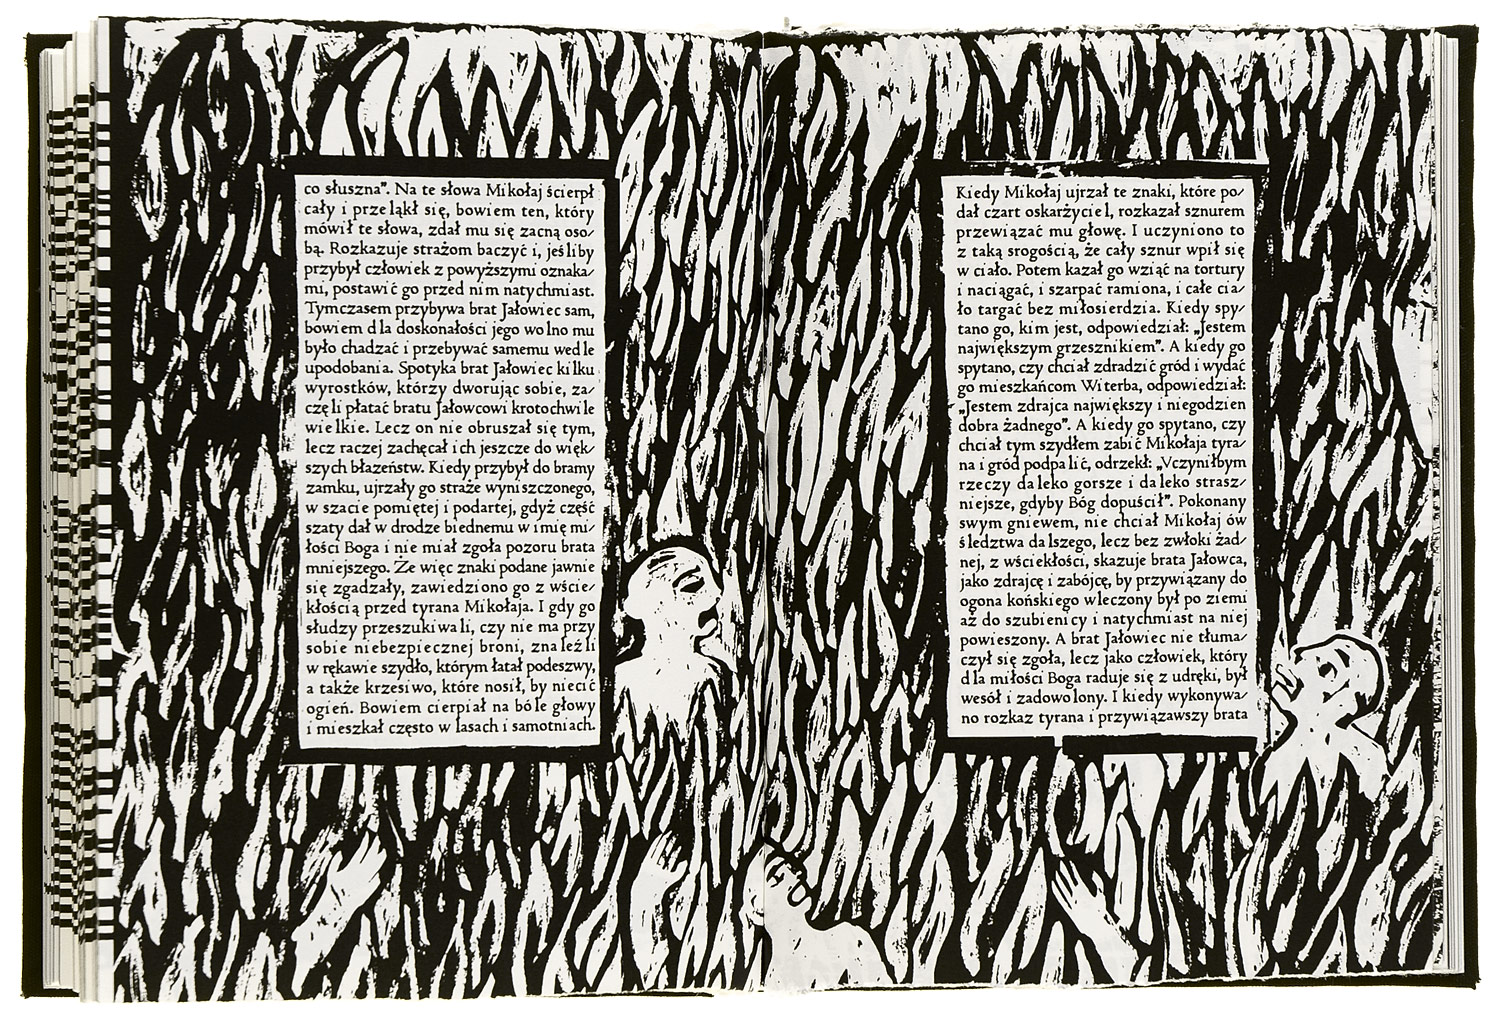 co słuszna”. Na te słowa Mikołaj ścierpł
cały i przeląkł się, bowiem ten, który
mówił te słowa, zdał mu się zacną oso/
bą. Rozkazuje strażom baczyć i, jeśliby
przybył człowiek z powyższymi oznaka/
mi, postawić go przed nim natychmiast.
Tymczasem przybywa brat Jałowiec sam,
bowiem dla doskonałości jego wolno mu
było chadzać i przebywać samemu wedle
upodobania. Spotyka brat Jałowiec kilku
wyrostków, którzy dworując sobie, za/
częli płatać bratu Jałowcowi krotochwile
wielkie. Lecz on nie obruszał się tym,
lecz raczej zachęcał ich jeszcze do więk/
szych błazeństw. Kiedy przybył do bramy
zamku, ujrzały go straże wyniszczonego,
w szacie pomiętej i podartej, gdyż część
szaty dał w drodze biednemu w imię mi/
łości Boga i nie miał zgoła pozoru brata
mniejszego. Że więc znaki podane jawnie
się zgadzały, zawiedziono go z wście/
kłością przed tyrana Mikołaja. I gdy go
słudzy przeszukiwali, czy nie ma przy
sobie niebezpiecznej broni, znaleźli
w rękawie szydło, którym łatał podeszwy,
a także krzesiwo, które nosił, by niecić
ogień. Bowiem cierpiał na bóle głowy
i mieszkał często w lasach i samotniach.
Kiedy Mikołaj ujrzał te znaki, które po/
dał czart oskarżyciel, rozkazał sznurem
przewiązać mu głowę. I uczyniono to
z taką srogością, że cały sznur wpił się
w ciało. Potem kazał go wziąć na tortury
i naciągać, i szarpać ramiona, i całe cia/
ło targać bez miłosierdzia. Kiedy spy/
tano go, kim jest, odpowiedział: „Jestem
największym grzesznikiem”. A kiedy go
spytano, czy chciał zdradzić gród i wydać
go mieszkańcom Witerba, odpowiedział:
„Jestem zdrajca największy i niegodzien
dobra żadnego”. A kiedy go spytano, czy
chciał tym szydłem zabić Mikołaja tyra/
na i gród podpalić, odrzekł: „Vczyniłbym
rzeczy daleko gorsze i daleko strasz/
niejsze, gdyby Bóg dopuścił”. Pokonany
swym gniewem, nie chciał Mikołaj ów
śledztwa dalszego, lecz bez zwłoki żad/
nej, z wściekłości, skazuje brata Jałowca,
jako zdrajcę i zabójcę, by przywiązany do
ogona końskiego wleczony był po ziemi
aż do szubienicy i natychmiast na niej
powieszony. A brat Jałowiec nie tłuma/
czył się zgoła, lecz jako człowiek, który
dla miłości Boga raduje się z udręki, był
wesół i zadowolony. I kiedy wykonywa/
no rozkaz tyrana i przywiązawszy brata